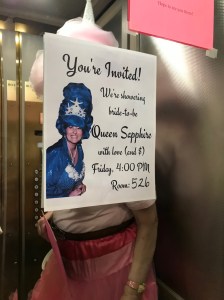 You're Invited!
We're showering
bride-to-be
Queen Sapphire
with love (and $)
Friday, 4:00 PM
Room: 526